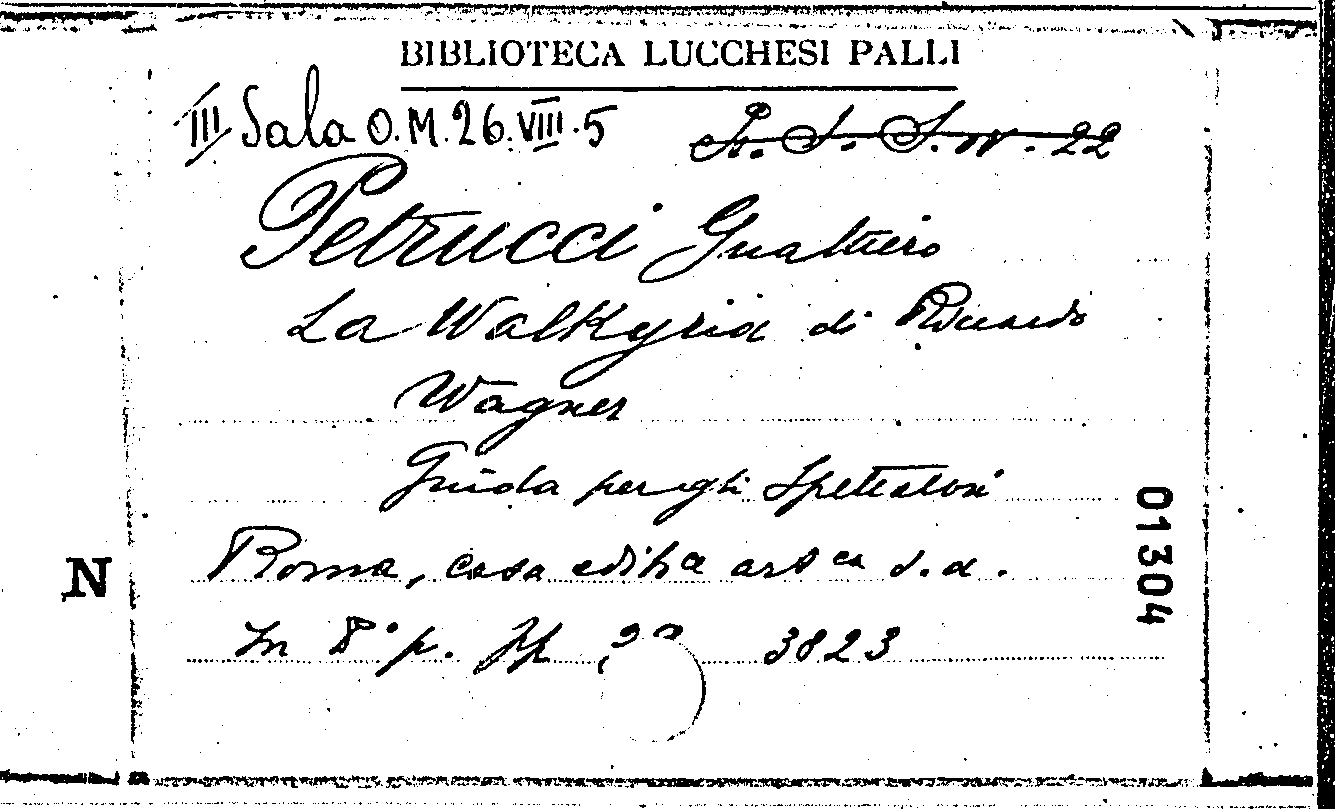 BIBLIOTECA LUCCHESI PALLI
III Sala O.M.26.VIII.5
S. IV. 22
Petrucci Gualtiero
La Walkyria di Riccardo
Wagner
Guida per gli Spettatori
Roma, casa edit.ca art.ca s.a.
In 8° p. pp. 3823
N
01304